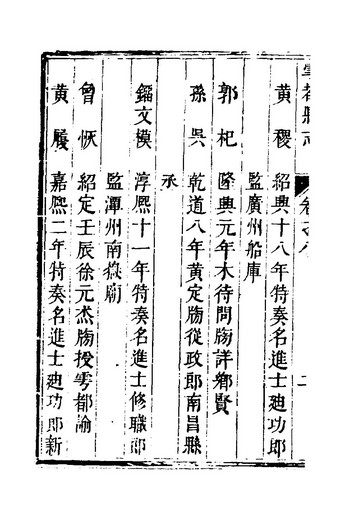 雩都縣志
卷之八
二
黃稷 紹興十八年特奏名進士廸功郎
監廣州船庫
郭杞 隆興元年木待問牓詳鄉賢
孫吳 乾道八年黃定牓從政郎南昌縣
丞
鎦文模 淳熙十一年特奏名進士修職郎
監潭州南嶽廟
曾恹 紹定壬辰徐元杰牓授雩都諭
黃履 嘉熙二年特奏名進士廸功郎新